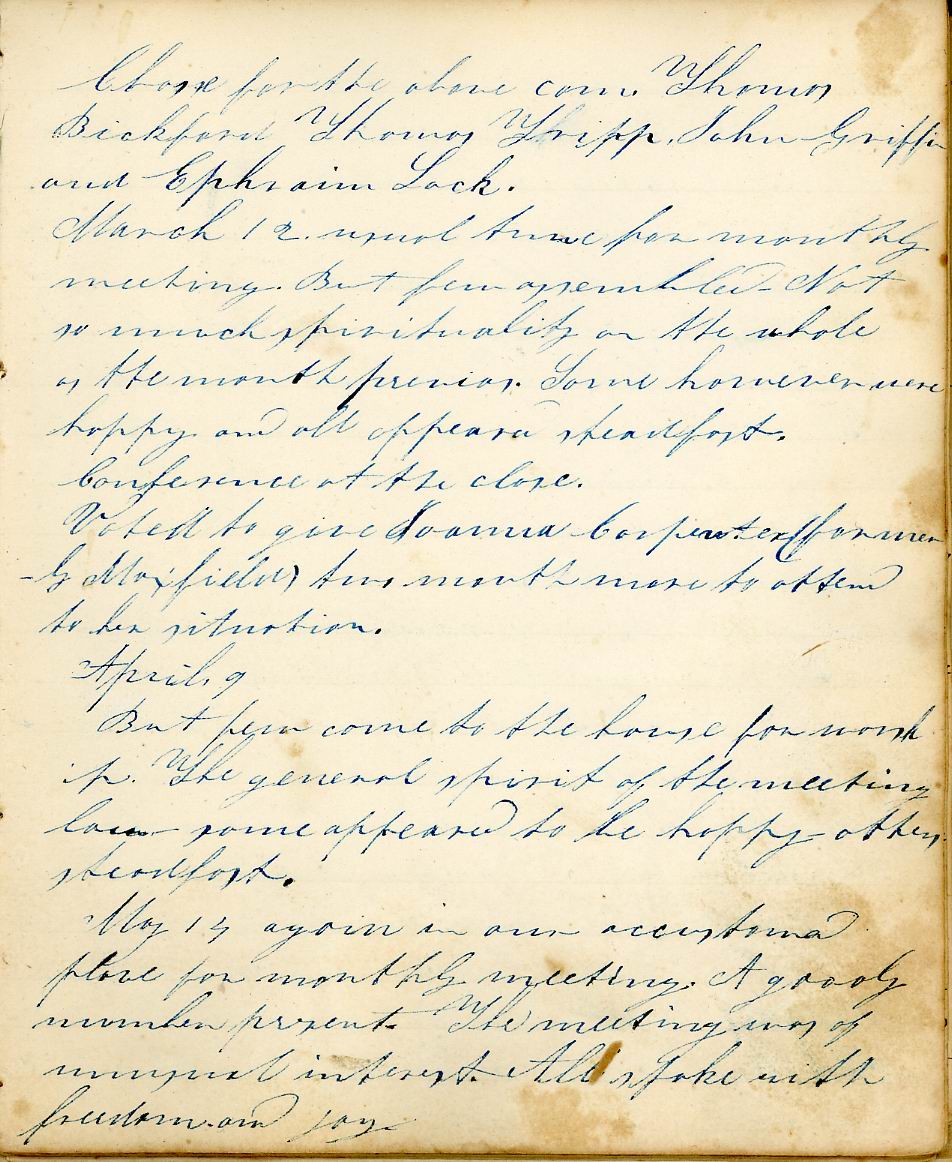 Chose for the above com. Thomas
Bickford Thomas Tripp. John Griffin
and Ephraim Lock.
March 12. usual time for monthly
meeting. But few assembled - Not
so much spirituality on the whole
as the month previos. Some however were
happy and all appeard steadfast.
Conference at the close.
Voted to give Joanna Carpenter (former
-ly Maxfield) two month more to attend
to her situation.
April. 9
But few come to the house for worsh
ip. The general spirit of the meeting
low - some appeared to be happy - others
steadfast.
May 14 again in our accustomd
place for monthly meeting. A goodly
number present. The meeting was of
unusual interest. All spoke with
freedom and joy